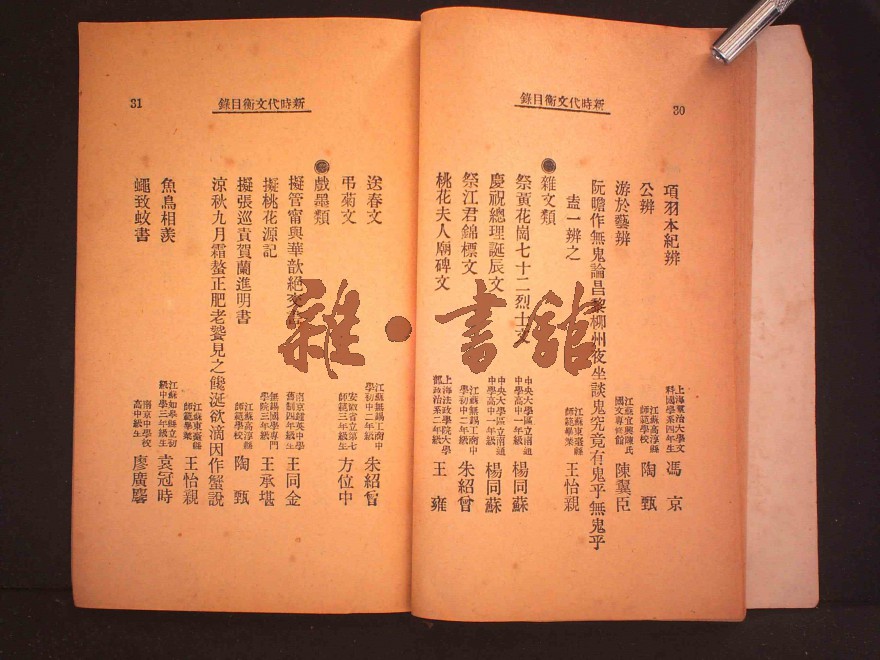 30
新時代文衡目錄
項羽本紀辨
上海羣治大學文科國學系四年生
馮京
公辨
江蘇高淳縣師範學校
陶甄
游於藝辨
江蘇宜興陳氏國文專修館
陳翼臣
阮瞻作無鬼論昌黎柳州夜坐談鬼究竟有鬼乎無鬼乎
盍一辨之
江蘇東臺縣師範學業
王怡親
雜文類
祭黃花崗七十二烈士文
中央大學區立南通中學高中一年級
楊同蘇
慶祝總理誕辰文
中央大學區立南通中學高中一年級
楊同蘇
祭江君錦標文
江蘇無錫工商中學初中二年級
朱紹曾
桃花夫人廟碑文
上海法政學院大學部政治系二年級
王雍
31
新時代文衡目錄
送春文
江蘇無錫工商中學初中二年級
朱紹曾
弔菊文
安徽省立第七師範三年級生
方位中
戲墨類
擬管甯與華歆絕交書
南京鍾英中學舊制四年級生
王同金
擬桃花源記
無錫國學專門學院三年級
王承堪
擬張巡責賀蘭進明書
江蘇高淳縣師範學校
陶甄
涼秋九月霜螯正肥老饕見之饞涎欲滴因作蟹說
江蘇東臺縣師範學業
王怡親
魚鳥相羨
江蘇如皋縣立初級中學三年級生
袁冠時
蠅致蚊書
南京中學校高中級生
廖廣麐
雜·書館